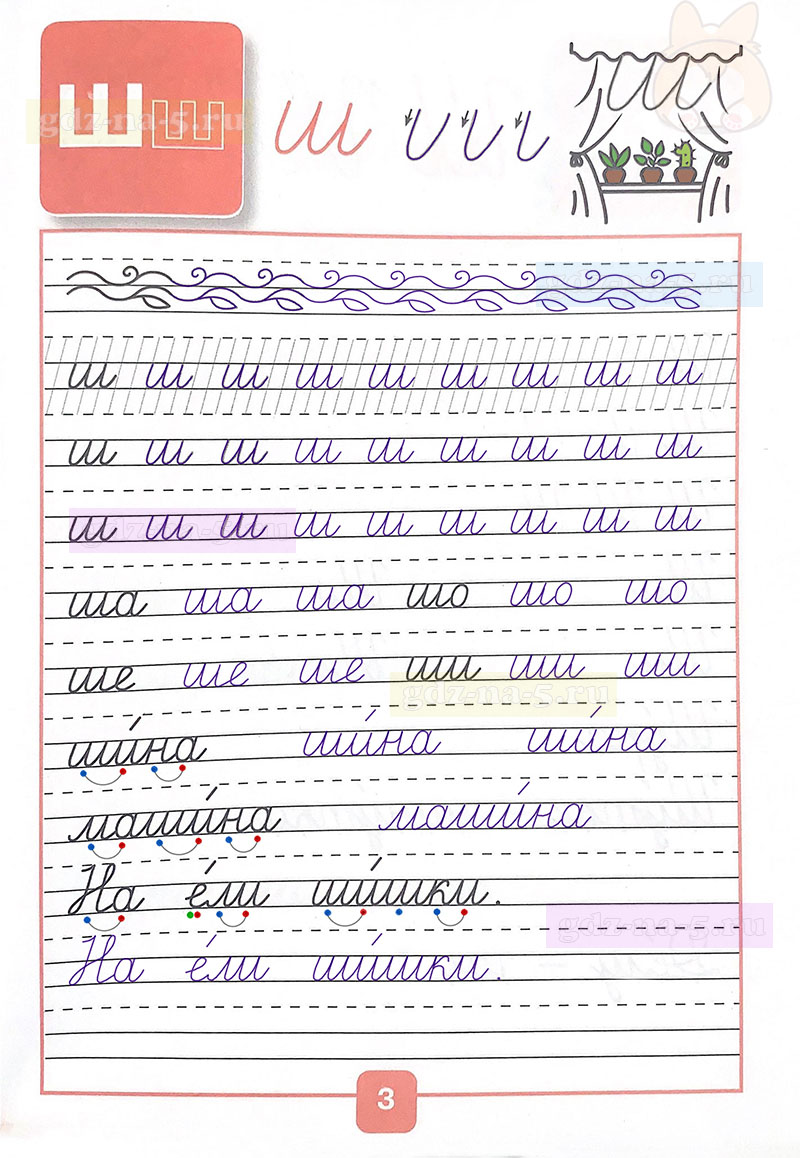 Ш ш ш
gdz-na-5.ru
gdz-na-5.ru
ш ш ш ш ш ш ш ш ш
ш ш ш ш ш ш ш ш ш
ш ш ш ш ш ш ш ш ш
gdz-na-5.ru
ша ша ша шо шо шо
ше ше ше ши ши ши
gdz-na-5.ru
ши́на ши́на ши́на
маши́на маши́на
На е́ли ши́шки.
gdz-na-5.ru
На е́ли ши́шки.
3